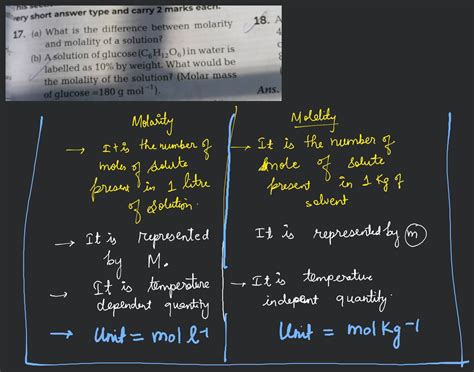 very short answer type and carry 2 marks each.
17. (a) What is the difference between molarity
and molality of a solution?
(b) A solution of glucose (C₆H₁₂O₆) in water is
labelled as 10% by weight. What would be
the molality of the solution? (Molar mass
of glucose =180 g mol⁻¹).
18. A
Ans.
Molarity
→ It is the number of
moles of solute
present in 1 litre
of solution.
→ It is represented
by M.
→ It is temperature
dependent quantity
→ Unit = mol l⁻¹
Molality
→ It is the number of
mole of solute
present in 1 kg of
solvent
It is represented by m
→ It is temperature
indepent quantity.
Unit = mol Kg⁻¹